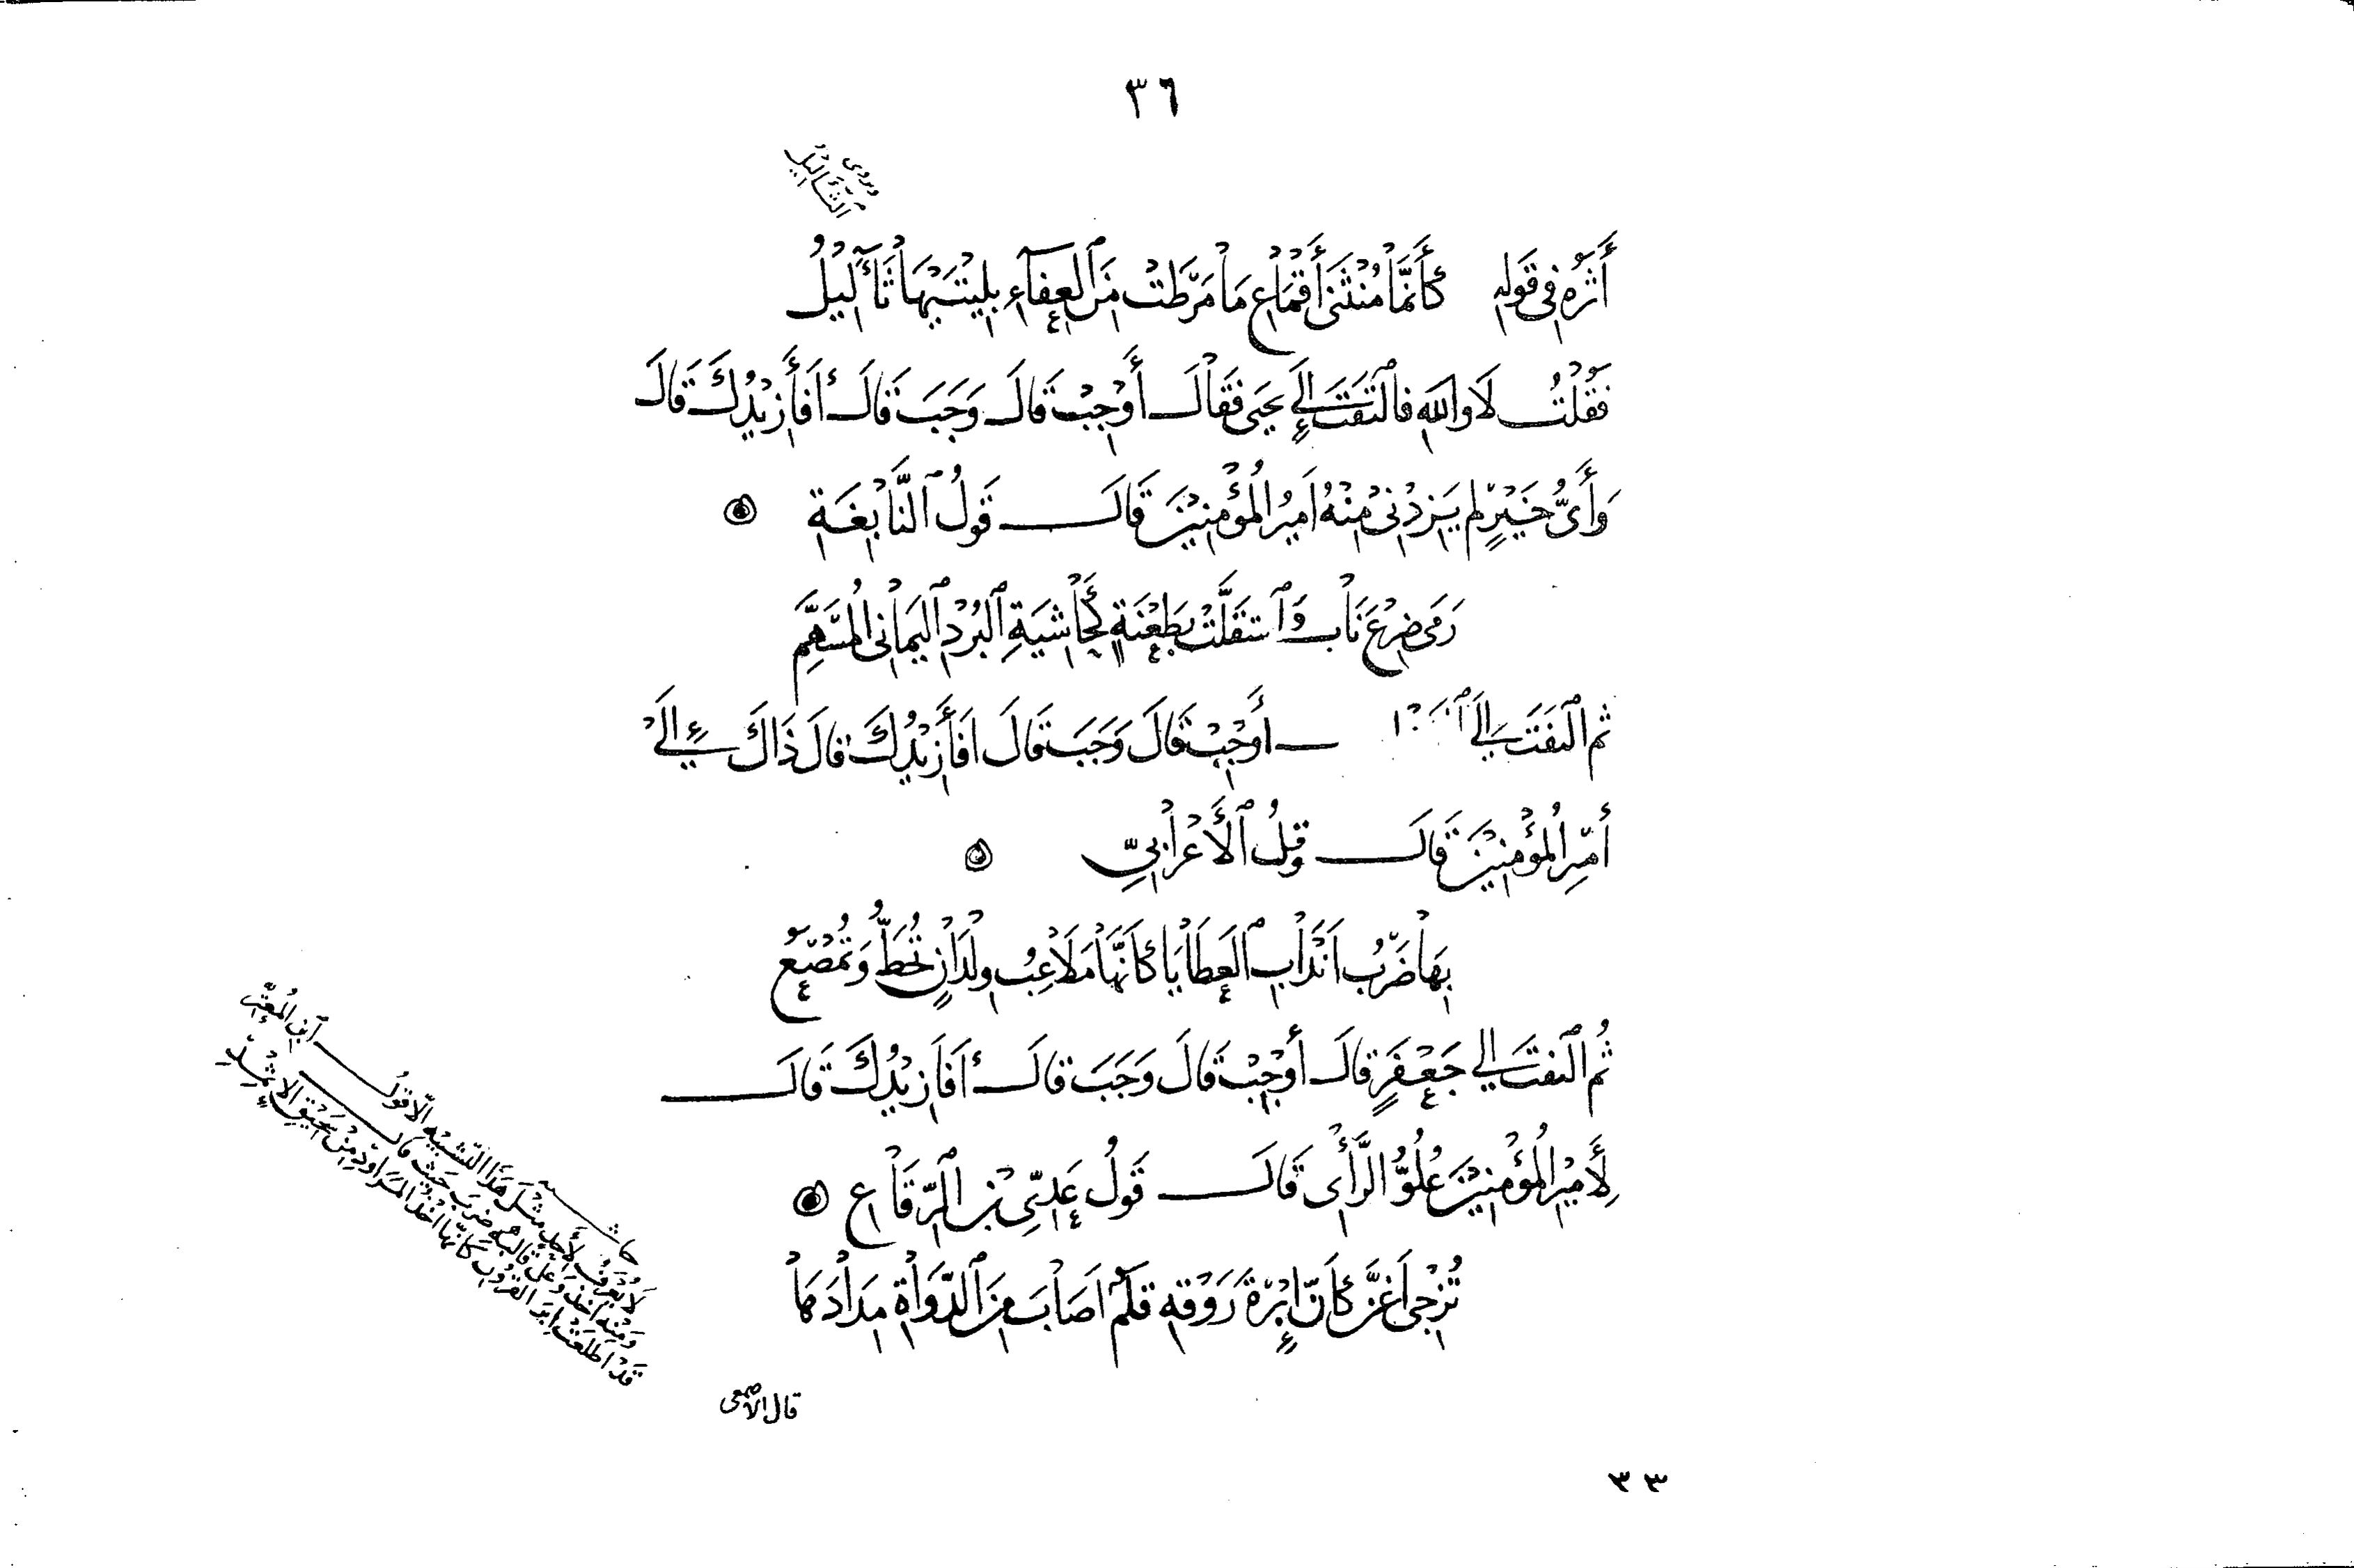 ٣٦
ويروى
الثآليل
أَثَرُهُ فِى قَوْلِهِ كَأَنَّمَا مُنْثَنَى أَقْمَاعِ مَا مَرَّطَتْ مِنَ ٱلْعِفَآءِ بِلِيْتَيْهَا ثَآلِيْلُ
فَقُلْتُ لَا وَاللهِ فَٱلْتَفَتَ إِلَى يَحْيَى فَقَالَ أَوْجَبْتَ قَالَ وَجَبَ قَالَ أَفَأَزِيْدُكَ قَالَ
وَأَىُّ خَيْرٍ لم يَزِدْنِى مِنْهُ أَمِيْرُ الْمُؤْمِنِيْنَ قَالَ قَوْلُ ٱلنَّابِغَةِ
رَمَى ضِرْعَ نَابٍ وَٱسْتَقَلَّتْ بِطَعْنَةٍ كَحَاشِيَةِ ٱلْبُرْدِ ٱلْيَمَانِى الْمُسَهَّمِ
ثم ٱلْتَفَتَ إِلَى أَوْجَبْتَ قَالَ وَجَبَ قَالَ أَفَأَزِيْدُكَ قَالَ ذَاكَ إِلَى
أَمِيْرِ الْمُؤْمِنِيْنَ قَالَ قَوْلُ ٱلْأَعْرَابِيِّ
بِهَا ضَرْبُ أَنْدَابِ ٱلْعَطَايَا كَأَنَّهَا مَلَاعِبُ وِلْدَانٍ تُخَطُّ وَتُمْصَعُ
ثُم ٱلْتَفَتَ إِلى جَعْفَرٍ قَالَ أَوْجَبْتَ قَالَ وَجَبَ قَالَ أَفَأَزِيْدُكَ قَالَ
لِأَمِيْرِ الْمُؤْمِنِيْنَ عُلُوُّ الرَّأْىِ قَالَ قَوْلُ عَدِىِّ بْنِ ٱلرِّقَاعِ
تُزْجِى أَغَنَّ كَأَنَّ إِبْرَةَ رَوْقِهِ قَلَمٌ أَصَابَ مِنَ ٱلدَّوَاةِ مِدَادَهَا
حاشية
لَا يُعْرَفُ لِأَحَدٍ مِثْلُ هَذَا التَّشْبِيْهِ إِلَّا قَوْلُ ٱبن الْمُعْتَزِّ
وَمِنْهُ أَخَذَ وَعَلَى قَالَبِهِ ضَرَبَ حَيْثُ قَالَ
قَدْ أَطْلَعَتْ إِبَرَ القُرُوْنِ كَأَنَّهَا أَخْذُ الْمَرَاوِدِ مِنْ سَحِيْقِ الإِثْمِدِ
قال الأصمعى
٣٣